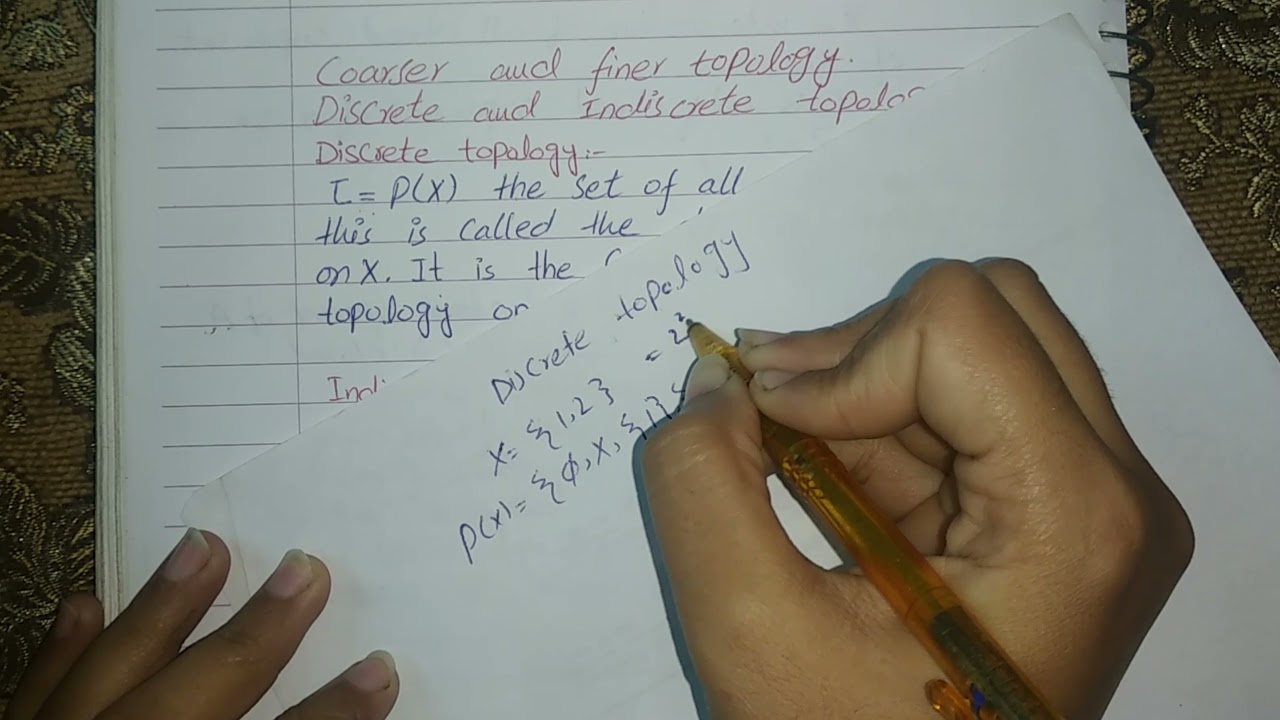 Coarser and finer topology.
Discrete and Indiscrete topolo
Discrete topology:-
τ = P(X) the set of all
this is called the
on X. It is the
topology or
Ind
Discrete topology
X = {1,2} = 2²
P(X) = {φ, X, {1}